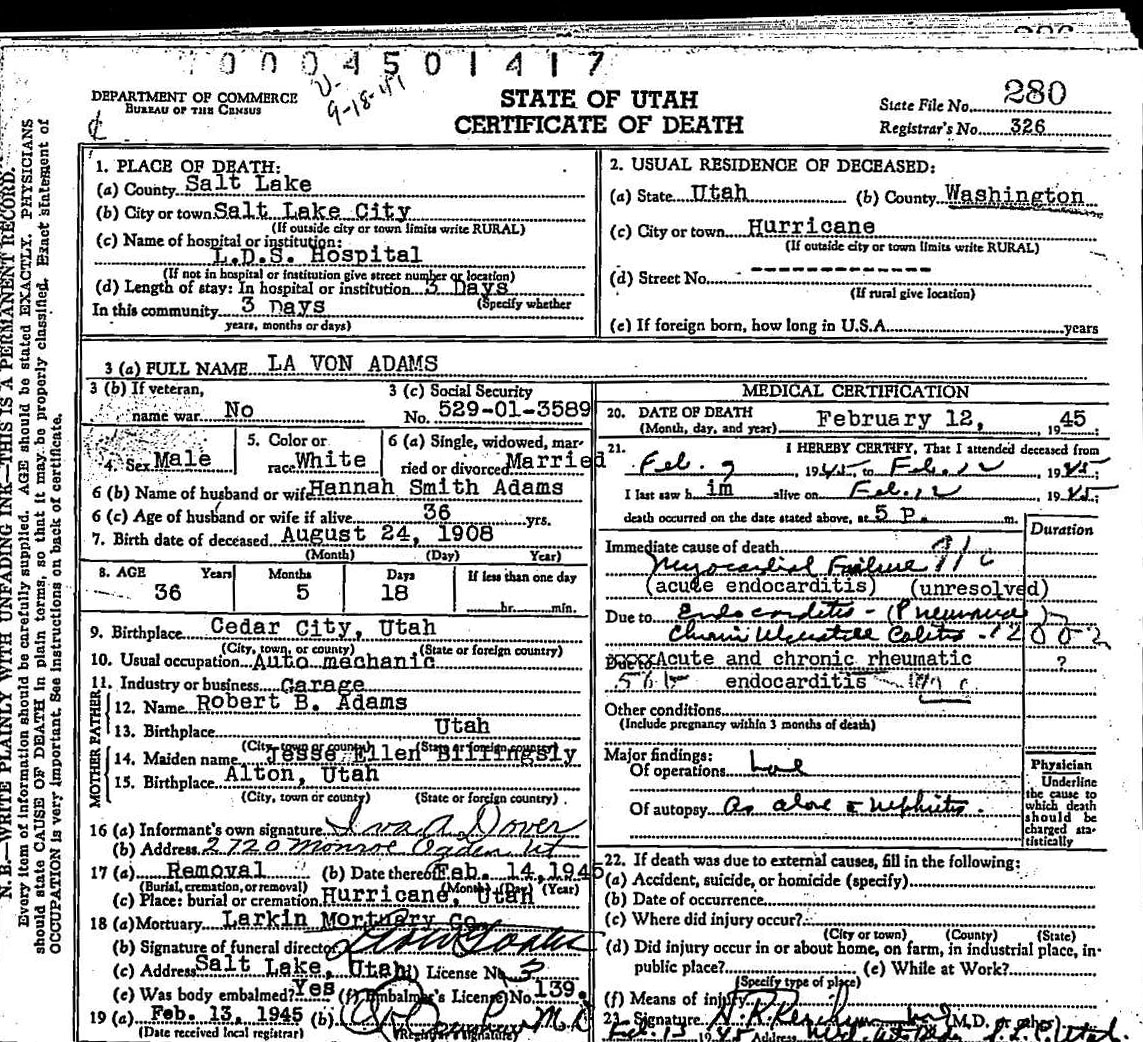 0004501417
U-
9-18-47
DEPARTMENT OF COMMERCE
BUREAU OF THE CENSUS
STATE OF UTAH
CERTIFICATE OF DEATH
State File No. 280
Registrar's No. 326
N. B.—WRITE PLAINLY WITH UNFADING INK—THIS IS A PERMANENT RECORD.
Every item of information should be carefully supplied. AGE should be stated EXACTLY. PHYSICIANS
should state CAUSE OF DEATH in plain terms, so that it may be properly classified. Exact statement of
OCCUPATION is very important. See instructions on back of certificate.
1. PLACE OF DEATH:
(a) County Salt Lake
(b) City or town Salt Lake City
(If outside city or town limits write RURAL)
(c) Name of hospital or institution:
L.D.S. Hospital
(If not in hospital or institution give street number or location)
(d) Length of stay: In hospital or institution 3 Days
(Specify whether
In this community 3 Days
years, months or days)
2. USUAL RESIDENCE OF DECEASED:
(a) State Utah (b) County Washington
(c) City or town Hurricane
(If outside city or town limits write RURAL)
(d) Street No. -------------
(If rural give location)
(e) If foreign born, how long in U.S.A. years
3 (a) FULL NAME LA VON ADAMS
3 (b) If veteran,
name war No
3 (c) Social Security
No. 529-01-3589
4. Sex Male
5. Color or
race White
6 (a) Single, widowed, mar-
ried or divorced Married
6 (b) Name of husband or wife Hannah Smith Adams
6 (c) Age of husband or wife if alive 36 yrs.
7. Birth date of deceased August 24, 1908
(Month) (Day) Year)
8. AGE Years Months Days If less than one day
36 5 18 hr. min.
9. Birthplace Cedar City, Utah
(City, town, or county) (State or foreign country)
10. Usual occupation Auto mechanic
11. Industry or business Garage
FATHER
12. Name Robert B. Adams
13. Birthplace Utah
(City, town or county) (State or foreign country)
MOTHER
14. Maiden name Jesse Ellen Billingsly
15. Birthplace Alton, Utah
(City, town or county) (State or foreign country)
16 (a) Informant's own signature Iva A Dover
(b) Address 2720 Monroe Ogden Ut
17 (a) Removal (b) Date thereof Feb. 14, 1945
(Burial, cremation, or removal) (Month) (Day) (Year)
(c) Place: burial or cremation Hurricane, Utah
18 (a) Mortuary Larkin Mortuary Co.
(b) Signature of funeral director
(c) Address Salt Lake, Utah (d) License No. 3
(e) Was body embalmed? Yes (f) Embalmer's License No. 139.
19 (a) Feb. 13, 1945 (b) M.D
(Date received local registrar) (Registrar's signature)
MEDICAL CERTIFICATION
20. DATE OF DEATH February 12, 1945
(Month, day, and year)
21. I HEREBY CERTIFY, That I attended deceased from
Feb. 9, 1945, to Feb. 12 1945;
I last saw h im alive on Feb. 12 1945;
death occurred on the date stated above, at 5 P. m.
Duration
Immediate cause of death
Myocardial Failure
(acute endocarditis) (unresolved)
Due to Endocarditis - (Pneumonia)
Chronic Ulcerative Colitis -
Acute and chronic rheumatic ?
endocarditis
Other conditions
(Include pregnancy within 3 months of death)
Major findings:
Of operations
Of autopsy As above & Nephritis.
Physician
Underline
the cause to
which death
should be
charged sta-
tistically
22. If death was due to external causes, fill in the following:
(a) Accident, suicide, or homicide (specify)
(b) Date of occurrence
(c) Where did injury occur?
(City or town) (County) (State)
(d) Did injury occur in or about home, on farm, in industrial place, in-
public place? (e) While at Work?
(Specify type of place)
(f) Means of injury
23. Signature (M.D. or other)
Feb. 13 1945 Address S.L.C. Utah.